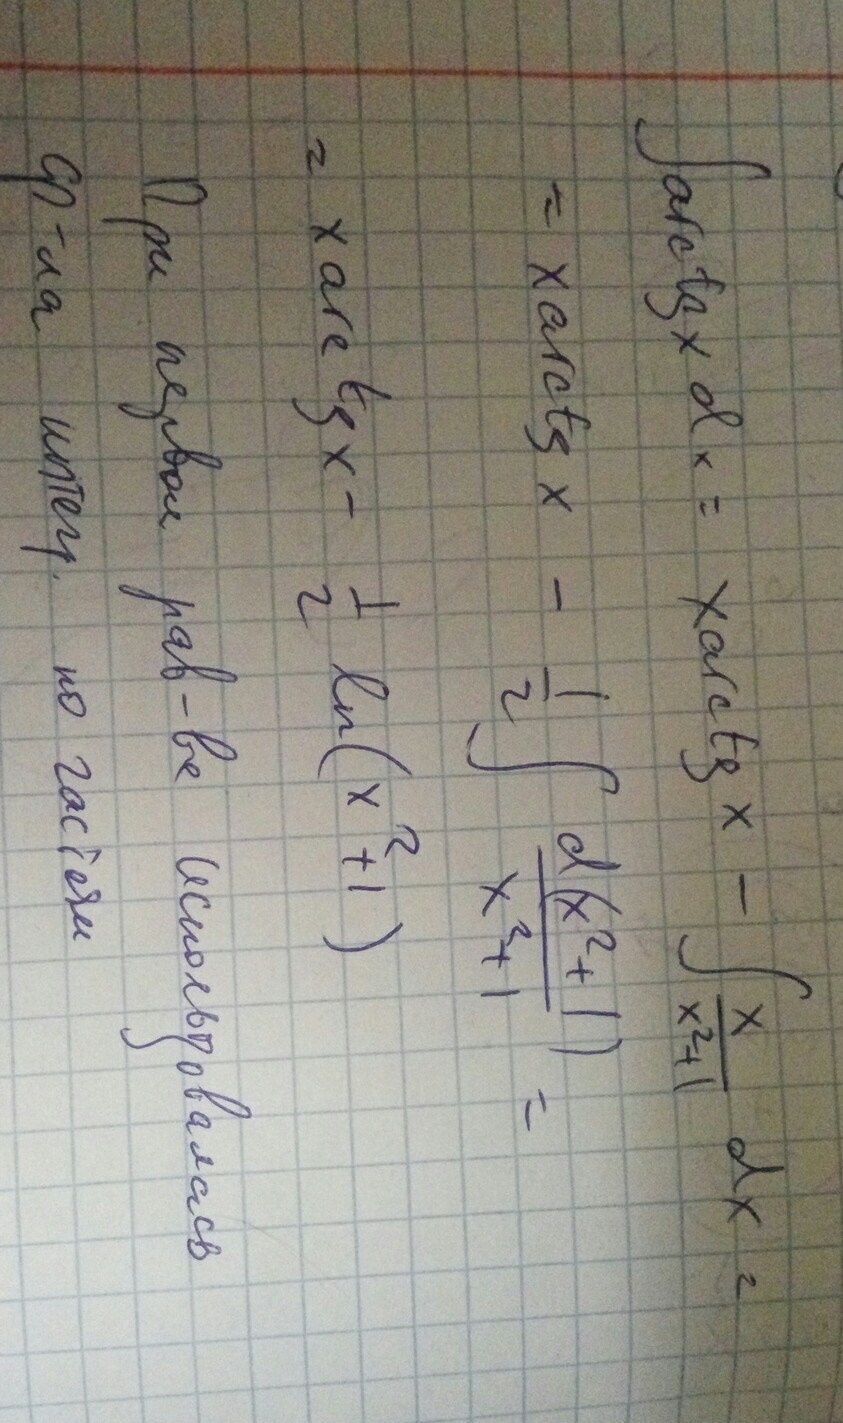 ∫arctg x dx = x arctg x - ∫ x/(x²+1) dx =
= x arctg x - 1/2 ∫ d(x²+1)/(x²+1) =
= x arctg x - 1/2 ln(x²+1)
При первом рав-ве использовалась
ф-ла интегр. по частям